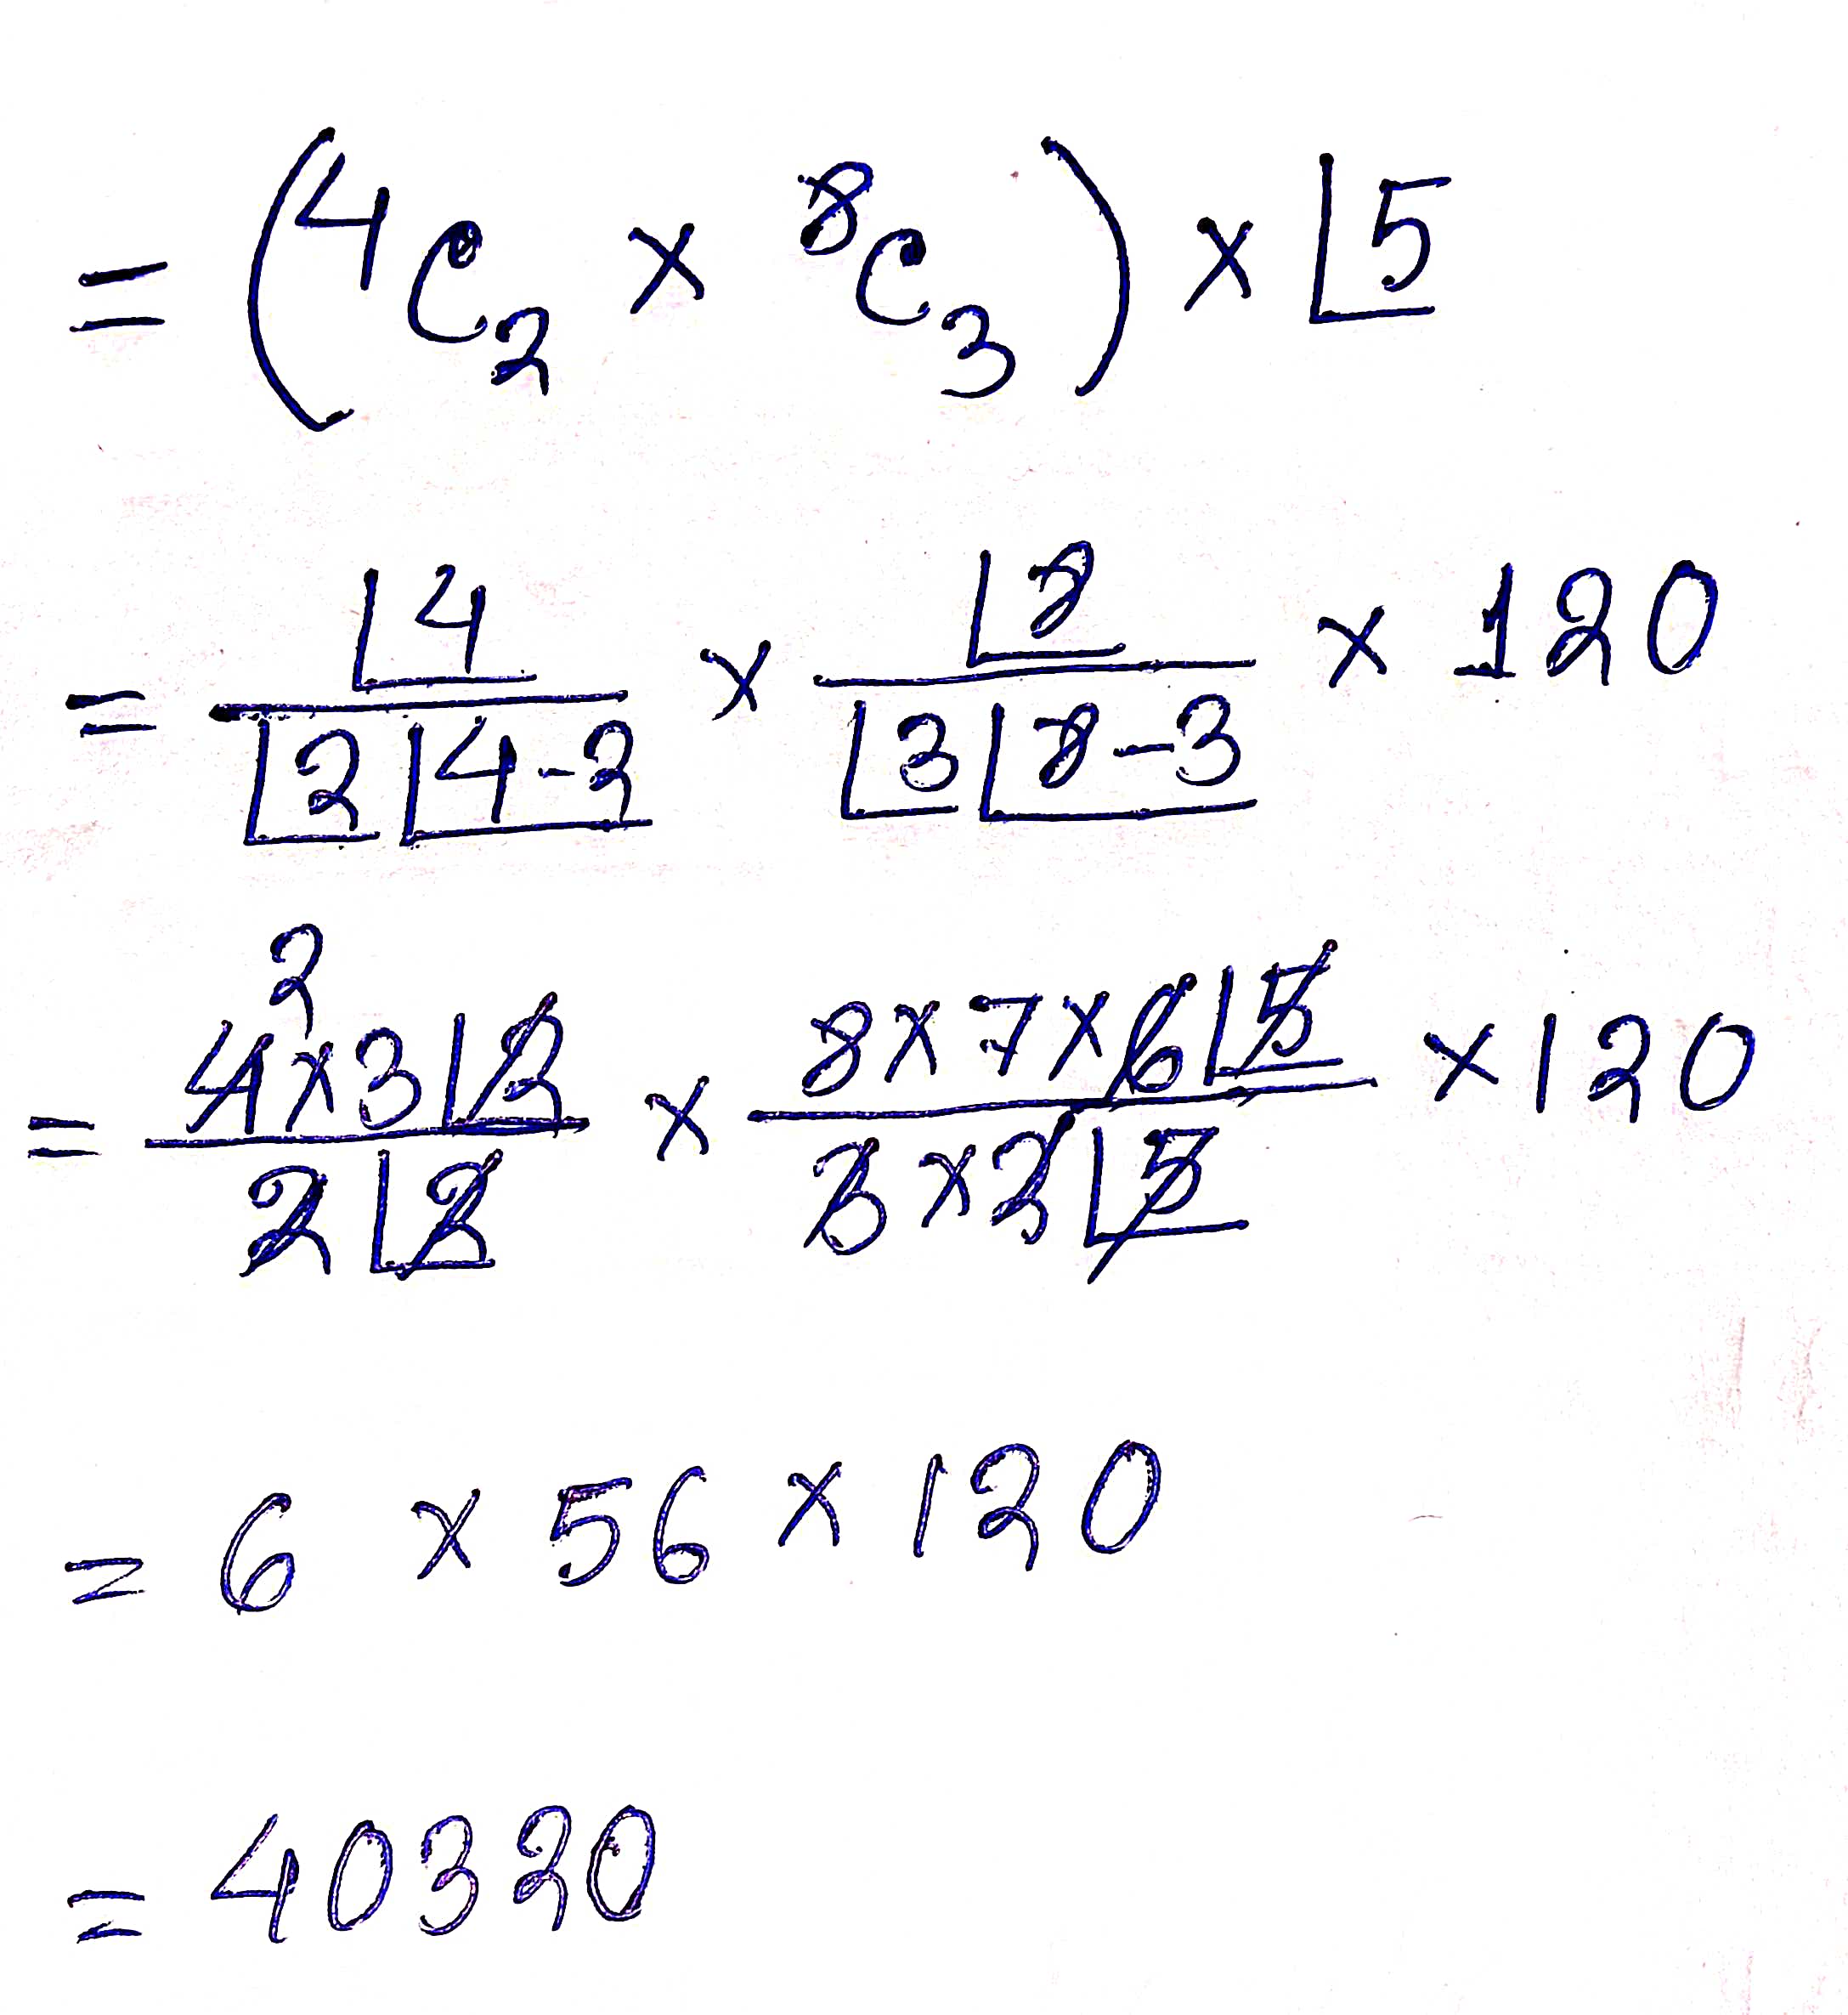 = (⁴C₂ × ⁸C₃) × ⌊5
= ⌊4 / (⌊2 ⌊4-2) × ⌊8 / (⌊3 ⌊8-3) × 120
2
= 4×3⌊2 / (2⌊2) × 8×7×6⌊5 / (3×2⌊5) ×120
= 6 × 56 × 120
= 40320